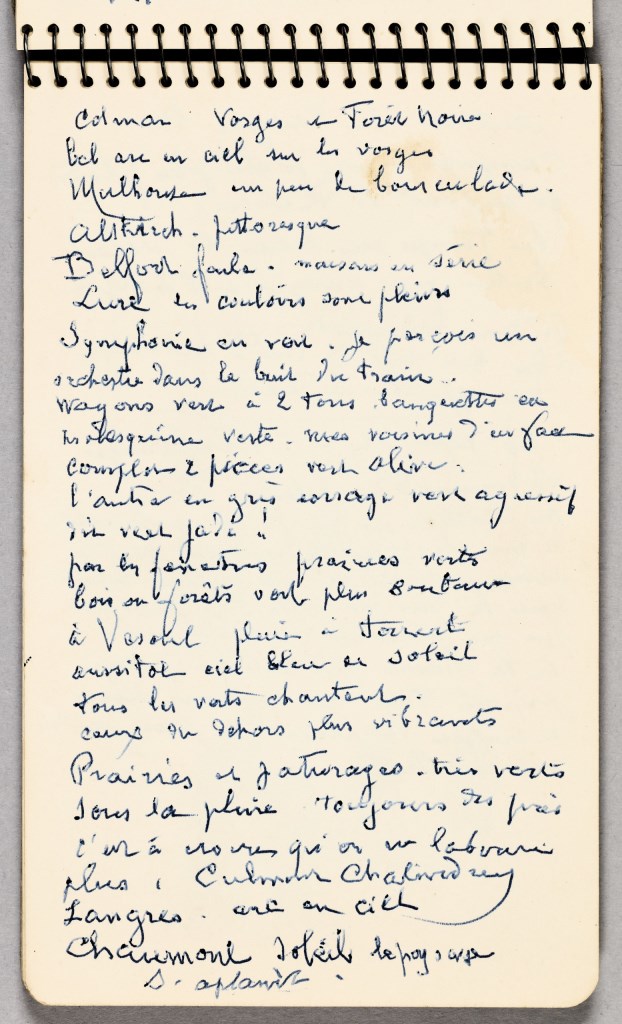 Colmar Vosges et Forêt Noire
bel arc en ciel sur les vosges
Mulhouse un peu de bousculade.
Altkirch. pittoresque
Belfort foule. maisons en série
Lure les couloirs sont pleins
Symphonie en vert. Je perçois un
orchestre dans le bruit du train.
Wagons vert à 2 tons banquettes en
molesquine verte. mes voisines d'en face
complet 2 pièces vert olive.
l'autre en gris corsage vert agressif
dit vert jade !
par les fenêtres prairies verts
bois ou forêts vert plus
à Vesoul pluie à torrents
aussitot ciel bleu et soleil
tous les verts chantent.
ceux du dehors plus vibrants
Prairies et paturages. très verts
sous la pluie toujours des prés
c'est à croire qu'on ne laboure
plus. Culmont Chalindrey
Langres. arc en ciel
Chaumont soleil le paysage
s. aplanit.